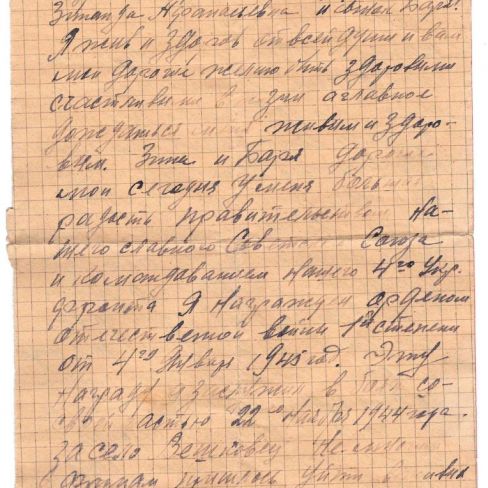 Зинаида Афанасьевна и сынок Боря!
Я жив и здоров от всей души и вам
мои дорогие желаю быть здоровыми
счастливыми в а главное
дождаться живым и здоро-
вым. Зина и Боря дорогие
мои сегодня у меня большая
радость правительством на-
шего славного Советского Союза
и командованием нашего 4го Укр.
фронта я награжден орденом
отечественной войны 1й степени
от 4го январ 1945 год. Эту
награду я заслужил в боях со-
22го ноября 1944 года.
за село
пришлось уйти